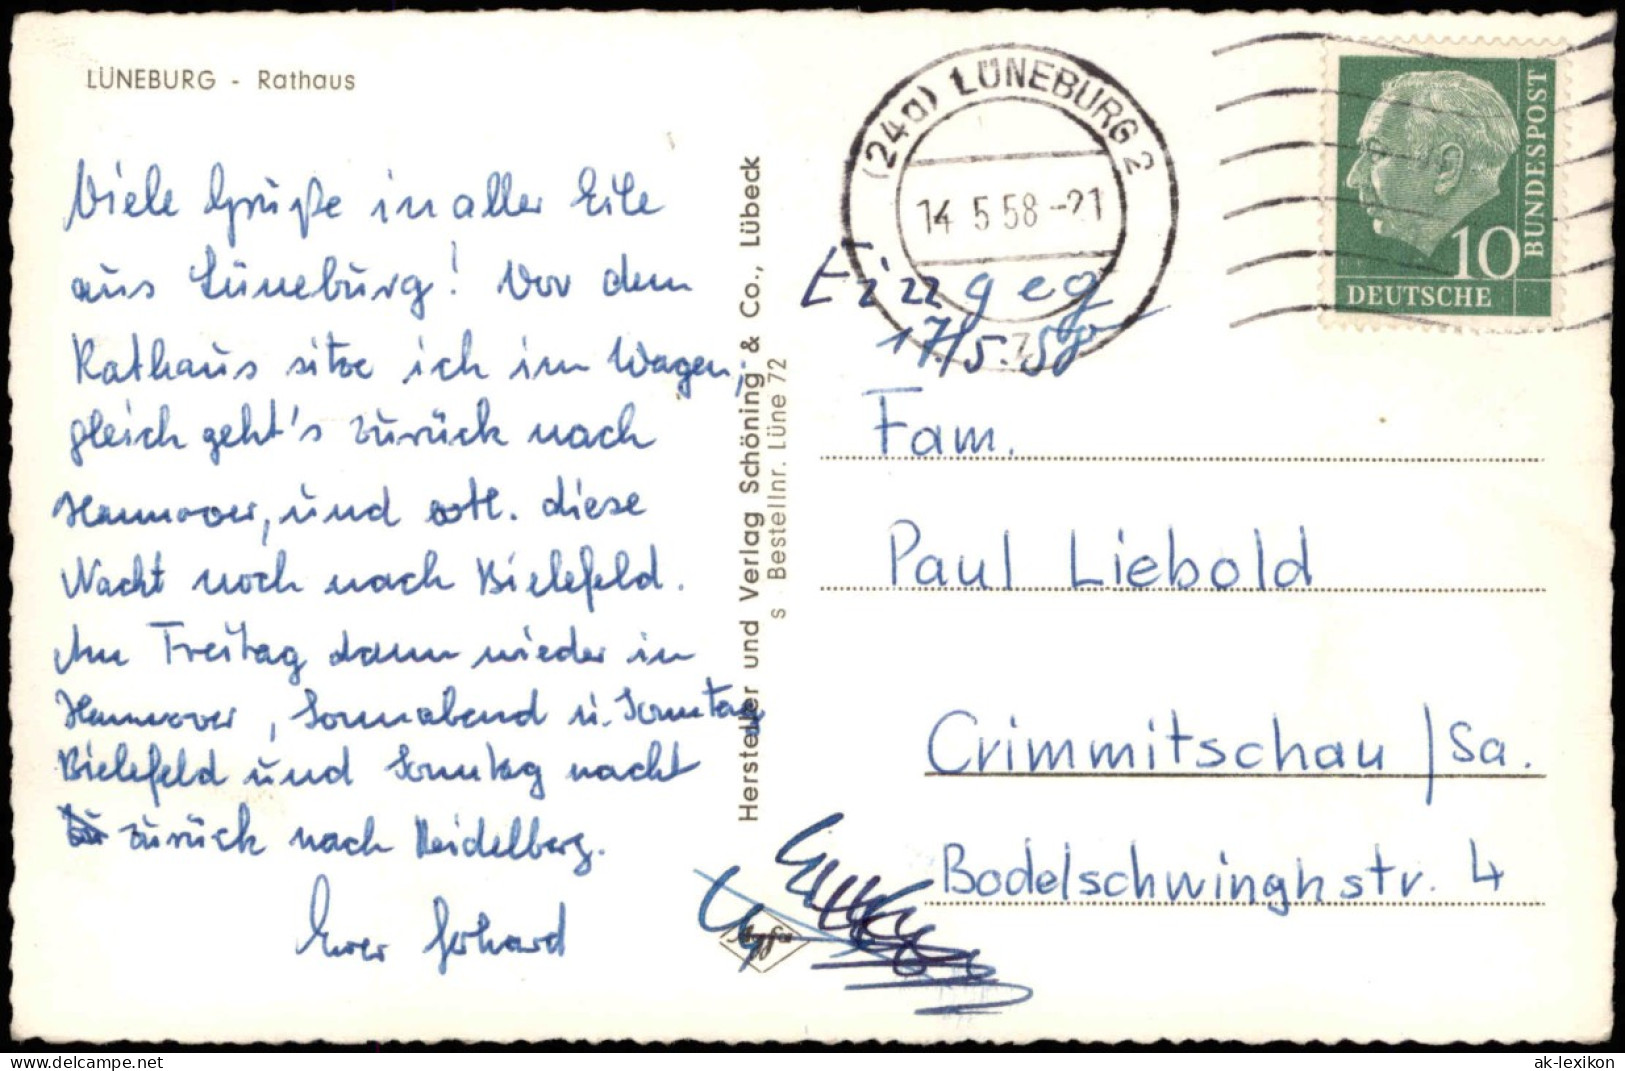 LÜNEBURG - Rathaus
Viele Grüße in aller Eile
aus Lüneburg! Vor dem
Rathaus sitze ich im Wagen,
gleich geht's zurück nach
Hannover, und evtl. diese
Nacht noch nach Bielefeld.
Am Freitag dann wieder in
Hannover, Sonnabend u. Sonntag
Bielefeld und Sonntag nacht
zurück nach Heidelberg.
Euer Gerhard
Hersteller und Verlag Schöning & Co., Lübeck
s Bestellnr. Lüne 72
(24a) LÜNEBURG 2
14.5.58-21
Eingeg
17/5.58
DEUTSCHE
BUNDESPOST
10
Fam.
Paul Liebold
Crimmitschau/Sa.
Bodelschwinghstr. 4
Agfa
www.delcampe.net
ak-lexikon